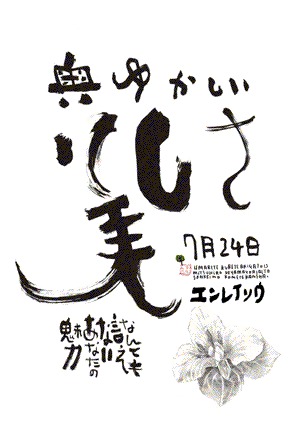 奥ゆかしい
美しさ
7月24日
エンレイソウ
なんとも
言えない
あなたの
魅力